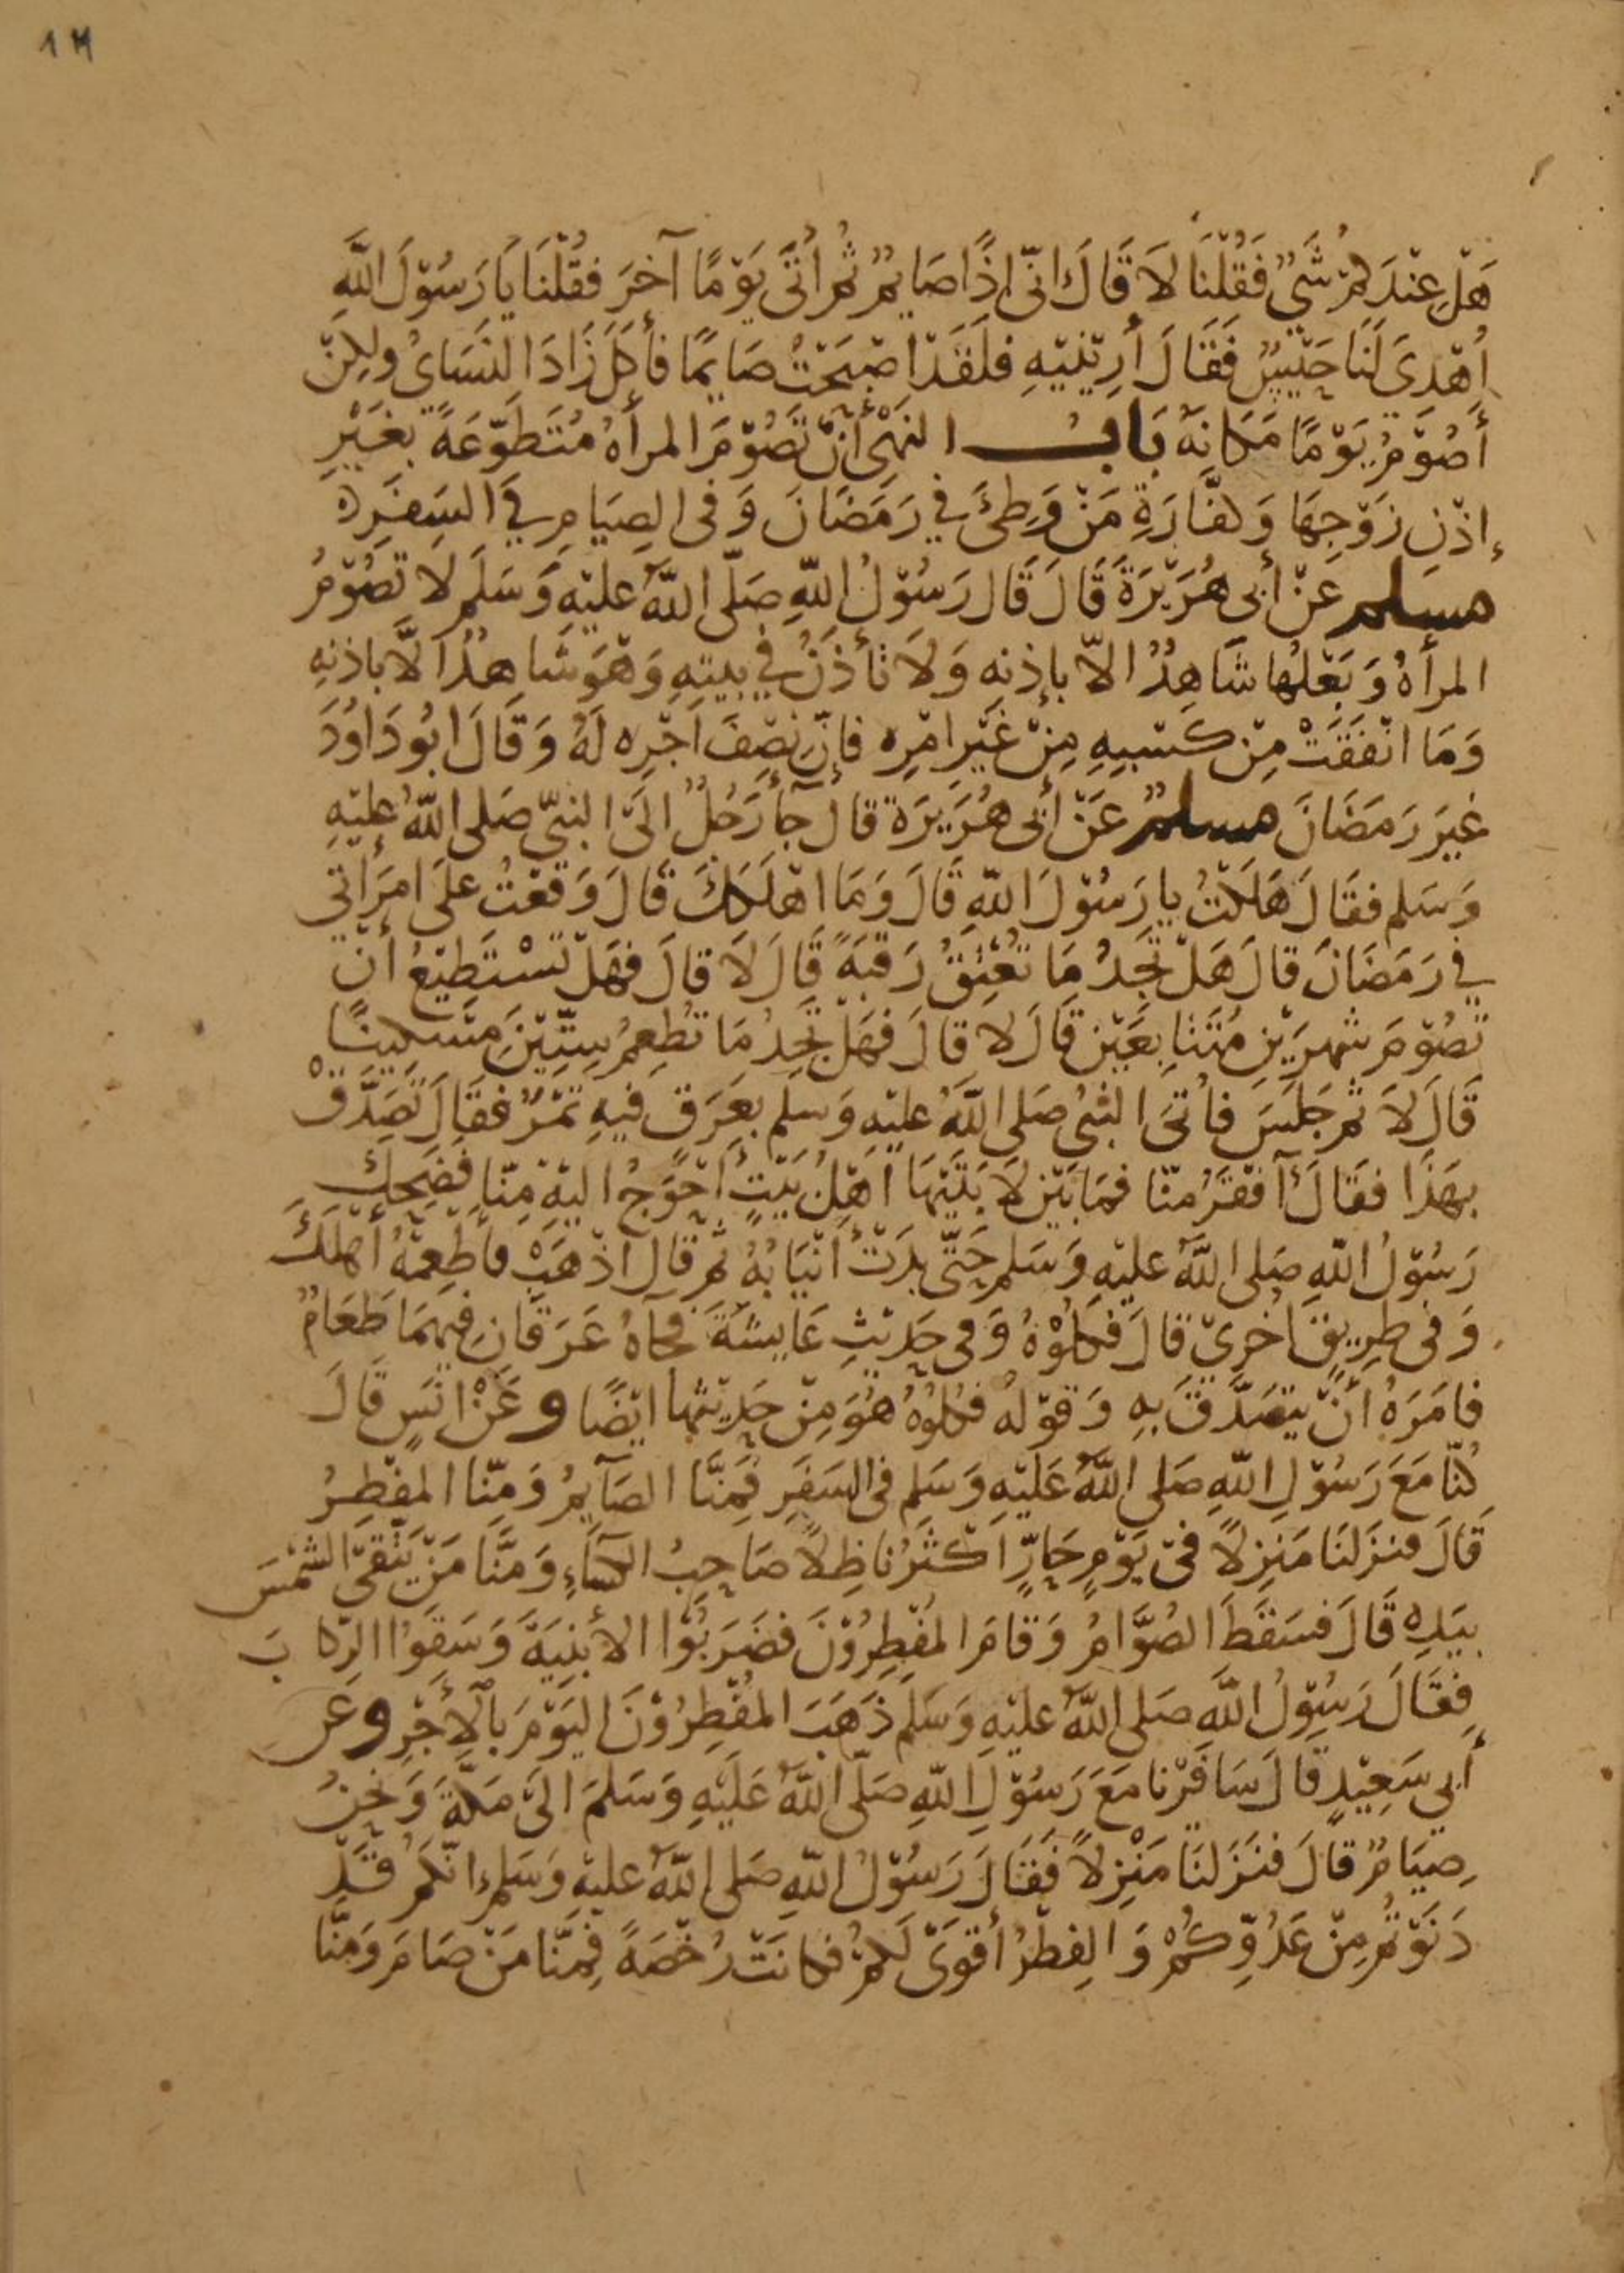 هَلْ عِنْدَكُمْ شَىْءٌ فَقُلْنَا لَا قَالَ انّى اِذًا صَايمٌ ثُمَّ أتَى يَوْمًا آخَرَ فقُلْنَا يَا رَسُوْلَ اللَّهِ
أُهْدِىَ لَنَا حَيْسٌ فَقَالَ أرِيْنِيْهِ فلَقَدْ اصْبَحْتُ صَايمًا فأكَلَ زَادَ النَسَاىُ ولكِنْ
أصُوْمُ يَوْمًا مَكَانَهُ بَابُ النَهْىِ أنْ تَصُوْمَ المرأةُ مُتَطَوِّعَةً بغَيْرِ
إذْنِ زَوْجِهَا وَكفَّارَةِ مَنْ وَطِىَٔ في رَمَضَانَ وَفى الصِيَامِ فِي السَفَرِه
مسلم عَنْ أبى هُرَيْرَةَ قَالَ قَالَ رَسُوْلُ اللَّهِ صَلَّى اللَّهُ عليْهِ وَسَلَمَ لَا تَصُوْمُ
المرأةُ وَبَعْلُها شَاهِدٌ الاّ بإذنِهِ وَلَا تأذَنُ في بيتِهِ وَهْوَ شَاهِدٌ الَّا باذنِهِ
وَمَا انْفَقَتْ مِنْ كَسْبِهِ مِنْ غَيْرِ امْرِه فإنّ نِصْفَ اجْرِه لَهُ وَقَالَ ابُو دَاوُدَ
غيرَ رَمَضَانَ مسلمٌ عَنْ أبى هُرَيرَةَ قالَ جآءَ رَجُلٌ الَى النبىّ صَلى اللَّهُ عليْهِ
وَسَلم فقَالَ هَلَكْتُ يا رَسُوْلَ اللَّهِ قَالَ وَمَا اهْلَكَكَ قَالَ وَقعْتُ علَى امرَأتى
في رَمَضَانَ قالَ هَلْ تَجِدُ مَا تُعْتِقُ رَقبَةً قَالَ لَا قالَ فهَلْ تَسْتَطيْعُ أنْ
تصُوْمَ شهرَيْنِ مُتَتَابِعَيْنِ قَالَ لا قالَ فهَلْ تجِدُ مَا تُطعِمُ سِتّيْنَ مِسْكِينًا
قَالَ لَا ثم جَلَسَ فأتىَ النبىُ صَلى اللَّهُ عليْهِ وَسَلم بعَرَقٍ فيهِ تَمْرٌ فقَالَ تَصَدَّقْ
بهَذَا فقَالَ أأفقَرُ منّا فمَا بَيْنَ لَابَتَيْهَا أهْلُ بَيْتٍ أحْوَجُ اليْهِ مِنّا فضَحِكَ
رَسُوْلُ اللَّهِ صَلى اللَّهُ عليْهِ وَسَلم حَتّى بدَتْ أنْيَابُهُ ثم قالَ اذْهَبْ فأطعِمْهُ أهلَكَ
وَفى طريقٍ اخرىْ قالَ فكلُوْهُ وَفى حَدِيْثِ عَايشَةَ فجَاهُ عَرَقَانِ فيهِمَا طَعَامٌ
فامَرَهُ أنْ يتصَدَّقَ بِهِ وَقوْلهُ فكلُوْهُ هُوَ مِنْ حَدِيْثها ايْضًا وعَنْ انَسٍ قَالَ
كُنّا مَعَ رَسُوْلِ اللَّهِ صَلى اللَّهُ عَلَيْهِ وَسَلم فى السَفَرِ فَمِنَّا الصَايمُ وَمِنّا المفْطِرُ
قَالَ فنزَلنَا مَنزِلًا فىْ يَوْمٍ حَارٍّ اكْثَرُنا ظِلًا صَاحِبُ الكسَاءِ وَمِنَّا مَنْ يَتَّقى الشمْسَ
بيَدِهِ قَالَ فسَقَطَ الصُوَّامُ وَقامَ المُفْطِرُوْنَ فضَرَبُوْا الأبنِيَةَ وَسَقَوْا الرّكابَ
فقَالَ رَسُوْلُ اللَّهِ صَلى اللَّهُ عليْهِ وَسَلم ذَهَبَ المفْطِرُوْنَ اليَوْمَ بالأجْرِ وعَنْ
أبي سَعِيْدٍ قالَ سَافَرْنا مَعَ رَسُوْلِ اللَّهِ صَلّى اللَّهُ عَلَيْهِ وَسَلمَ الىَ مَكّةَ وَنحْنُ
صِيَامٌ قالَ فنَزَلنَا مَنْزِلًا فقَالَ رَسُوْلُ اللَّهِ صَلى اللَّهُ عليْهِ وَسَلم إنّكُمْ قَدْ
دَنَوْتُمْ مِنْ عَدُوِّكُمْ وَالفِطْرُ أقوَى لَكُمْ فكانَتْ رُخْصَةً فِمنَّا مَنْ صَامَ وَمِنَّا